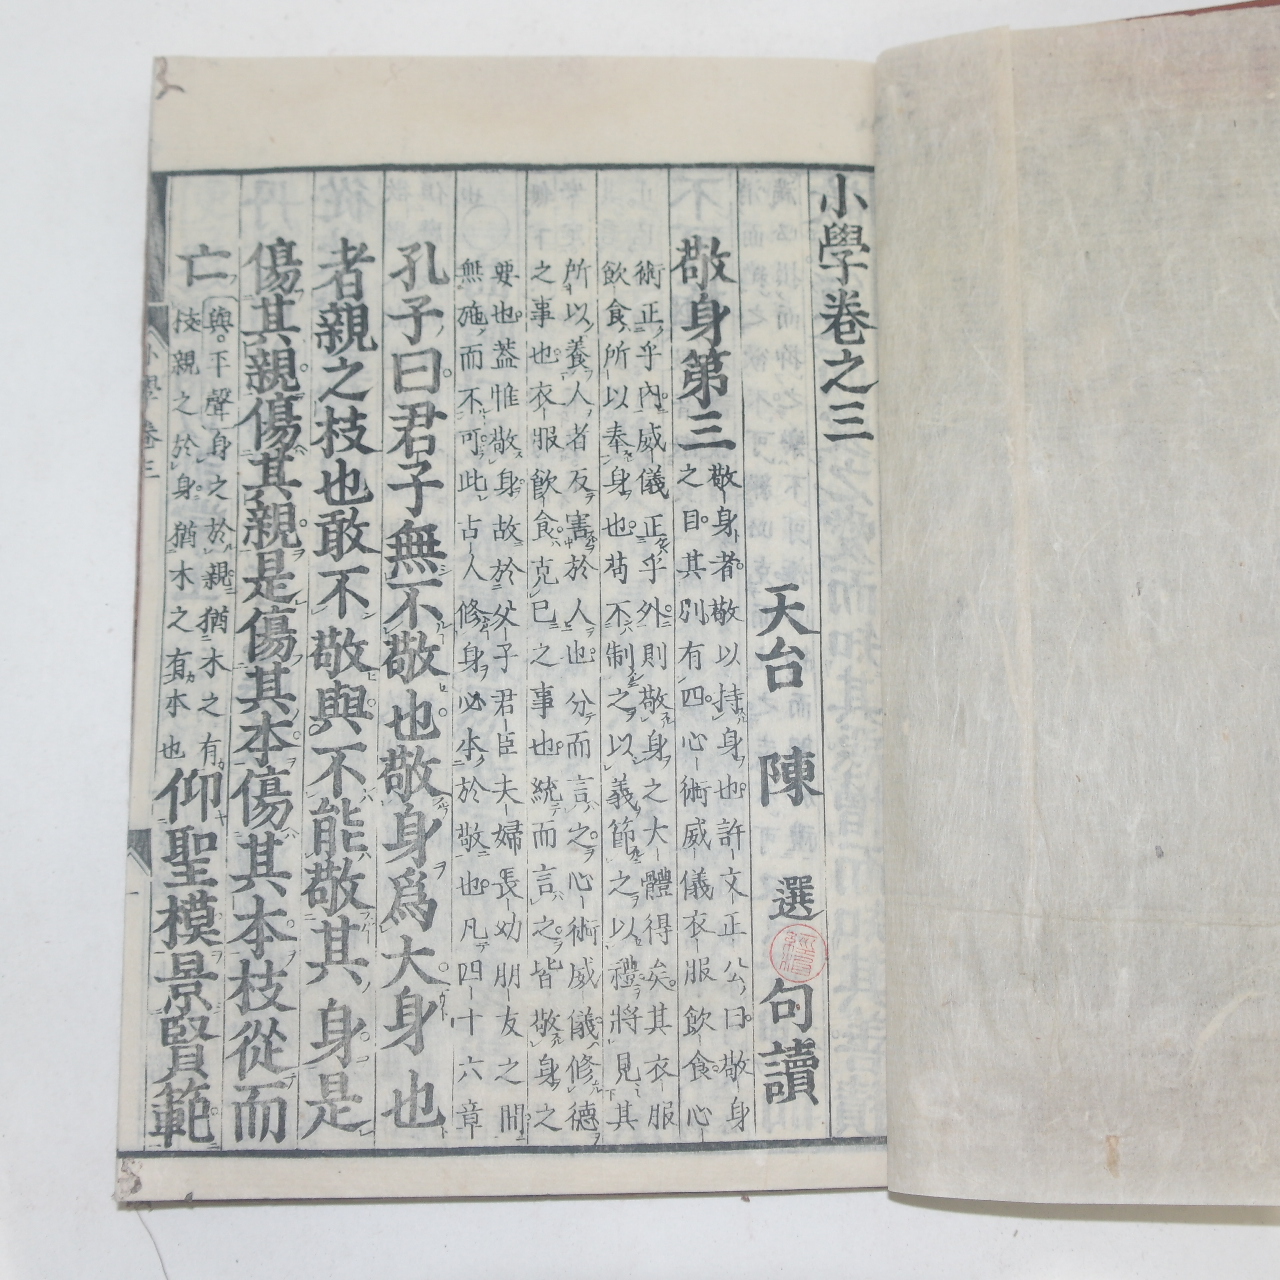 小學卷之三
天台 陳 選 句讀
敬身第三
敬身者敬以持身也許文正公曰敬身
之目其別有四心術威儀衣服飲食心
術正乎內威儀正乎外則敬身之大體得矣其衣服
飲食所以奉身也苟不制之以義節之以禮將見其
所以養人者反害於人也分而言之心術威儀修德
之事也衣服飲食克己之事也統而言之皆敬身之
要也蓋惟敬身故於父子君臣夫婦長幼朋友之間
無施而不可此古人修身必本於敬也凡四十六章
孔子曰君子無不敬也敬身爲大身也
者親之枝也敢不敬與不能敬其身是
傷其親傷其親是傷其本傷其本枝從而
亡
與平聲身之於親猶木之有
枝親之於身猶木之有本也
仰聖模景賢範
小學卷三
一